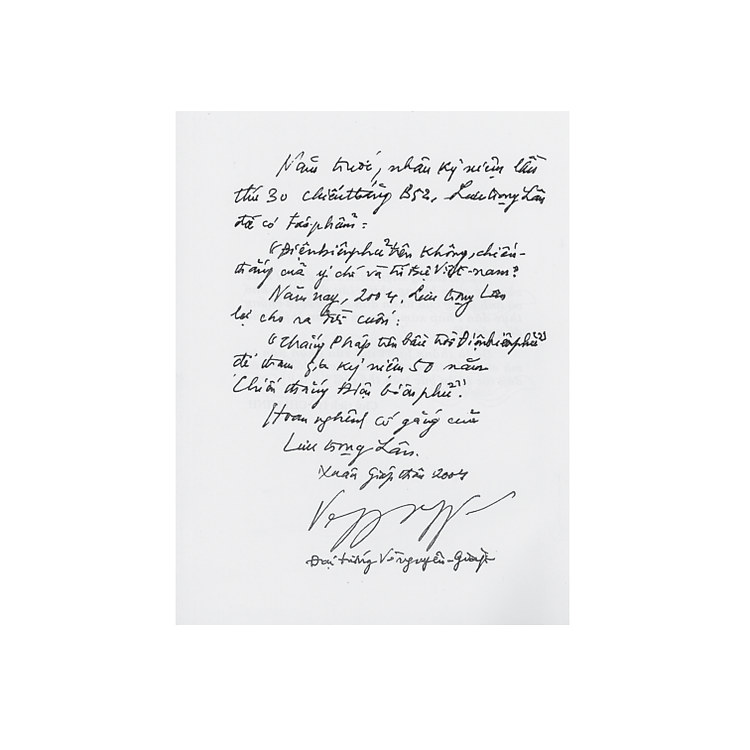 Năm trước, nhân kỷ niệm lần
thứ 30 chiến thắng B52, Lưu trọng Lân
đã có tác phẩm:
"Điện biên phủ trên không, chiến-
thắng của ý chí và trí tuệ Việt-nam"
Năm nay, 2004, Lưu trọng Lân
lại cho ra tiếp cuốn:
"Thắng Pháp trên bầu trời Điện biên phủ"
để tham gia kỷ niệm 50 năm
Chiến thắng Điện biên phủ".
Hoan nghênh cố gắng của
Lưu trọng Lân.
Xuân Giáp thân 2004
Đại tướng Võ nguyên-Giáp